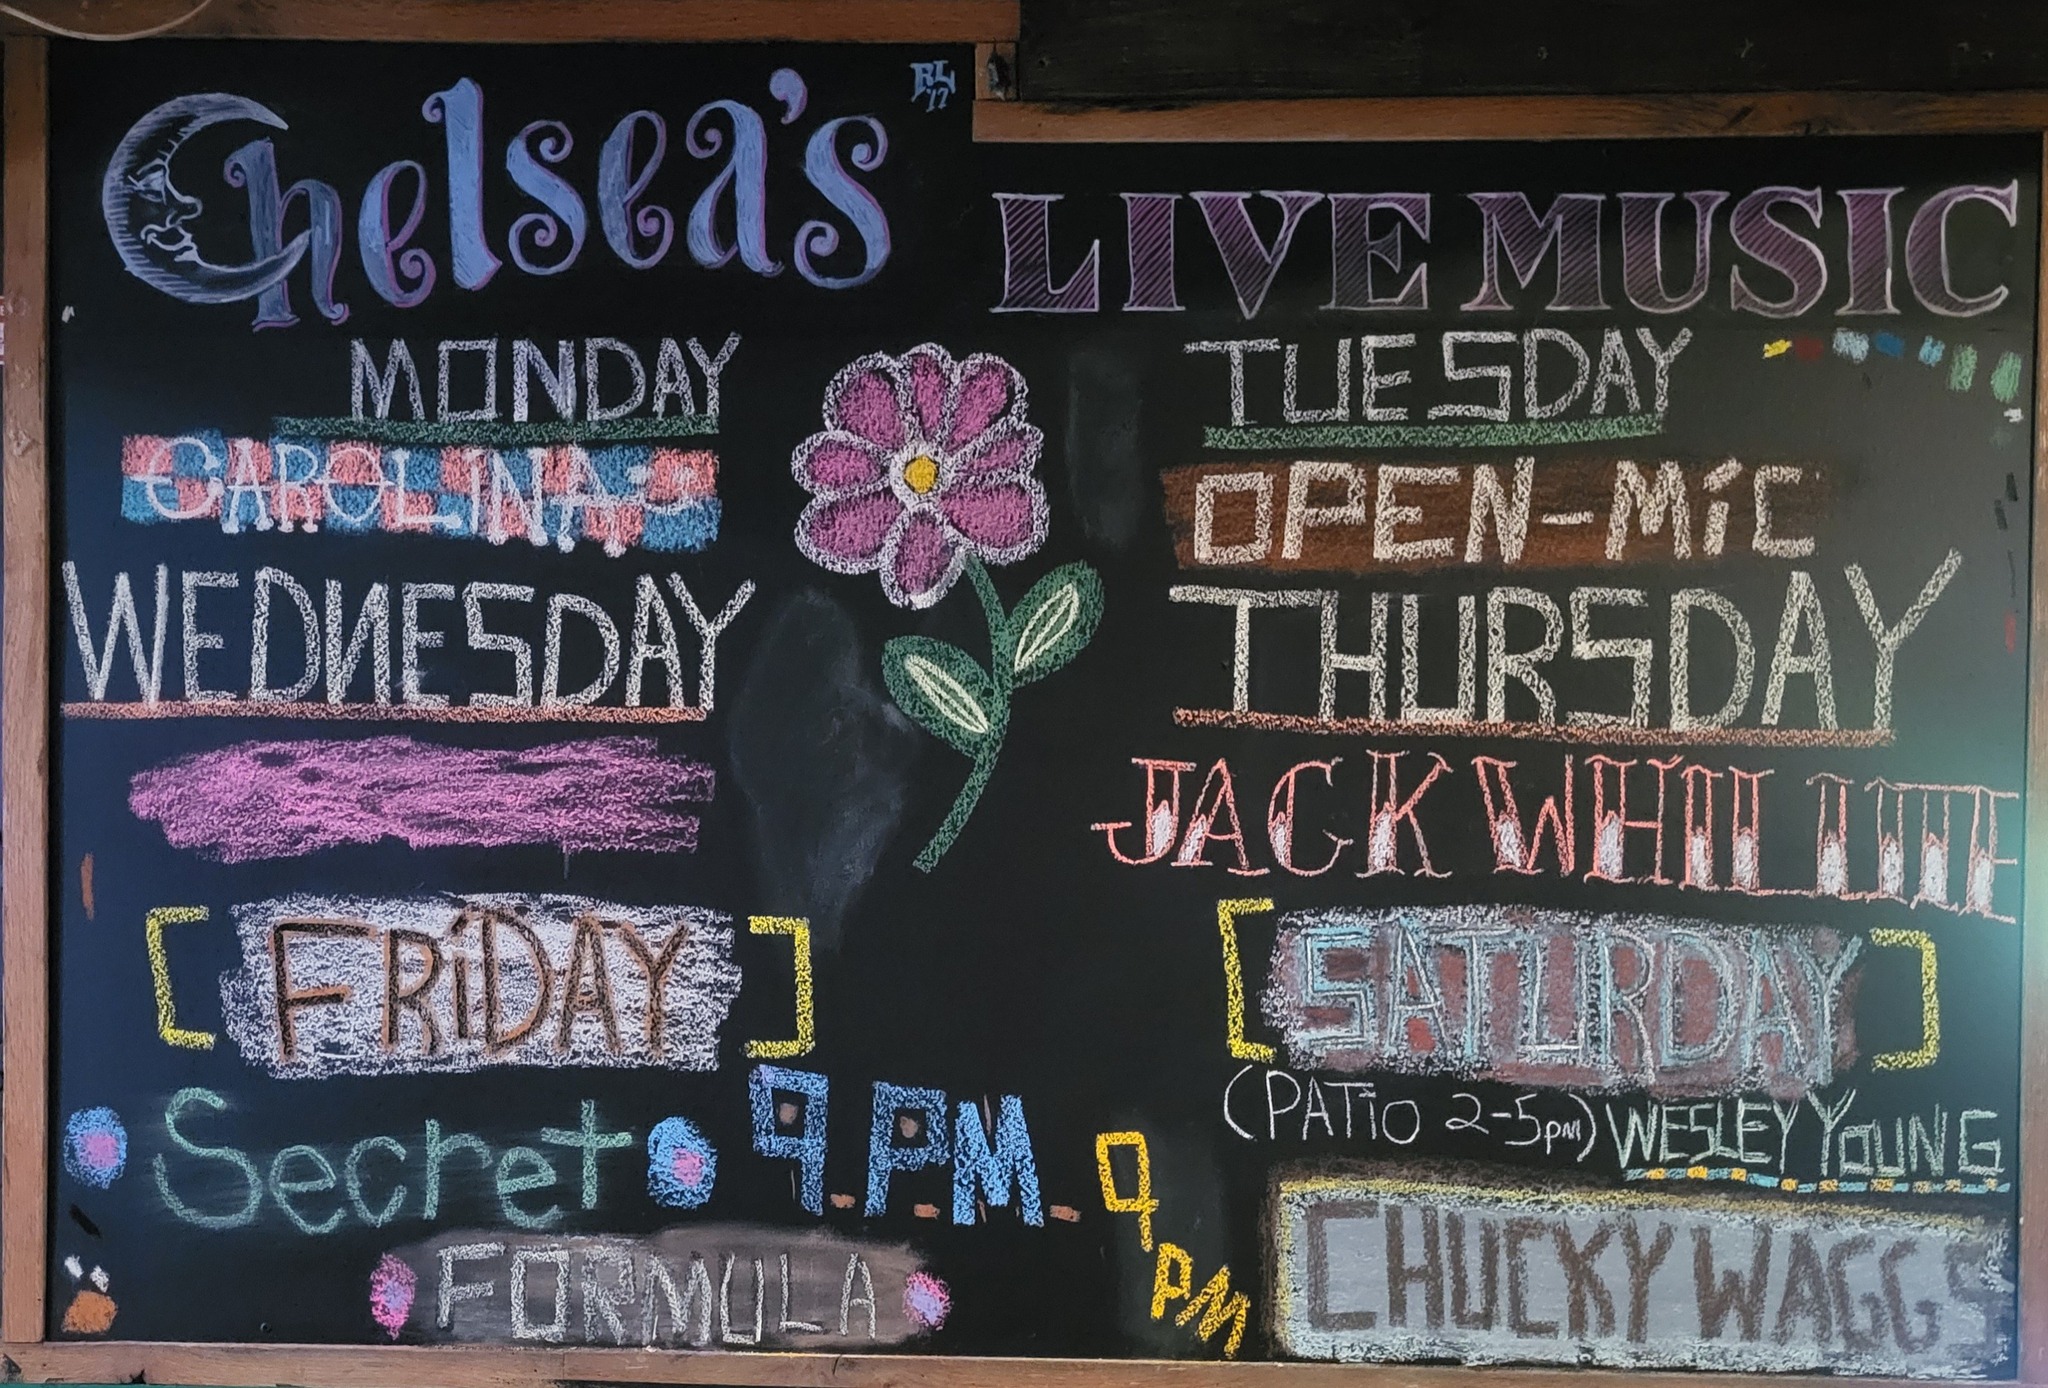 Chelsea's
RL
'17
LIVE MUSIC
MONDAY
CAROLINA
TUESDAY
OPEN-MiC
WEDNESDAY
THURSDAY
JACK
[FRiDAY]
Secret 9.P.M.
FORMULA
[SATURDAY]
(PATiO 2-5pm) WESLEY YOUNG
9 PM
CHUCKY WAGGS